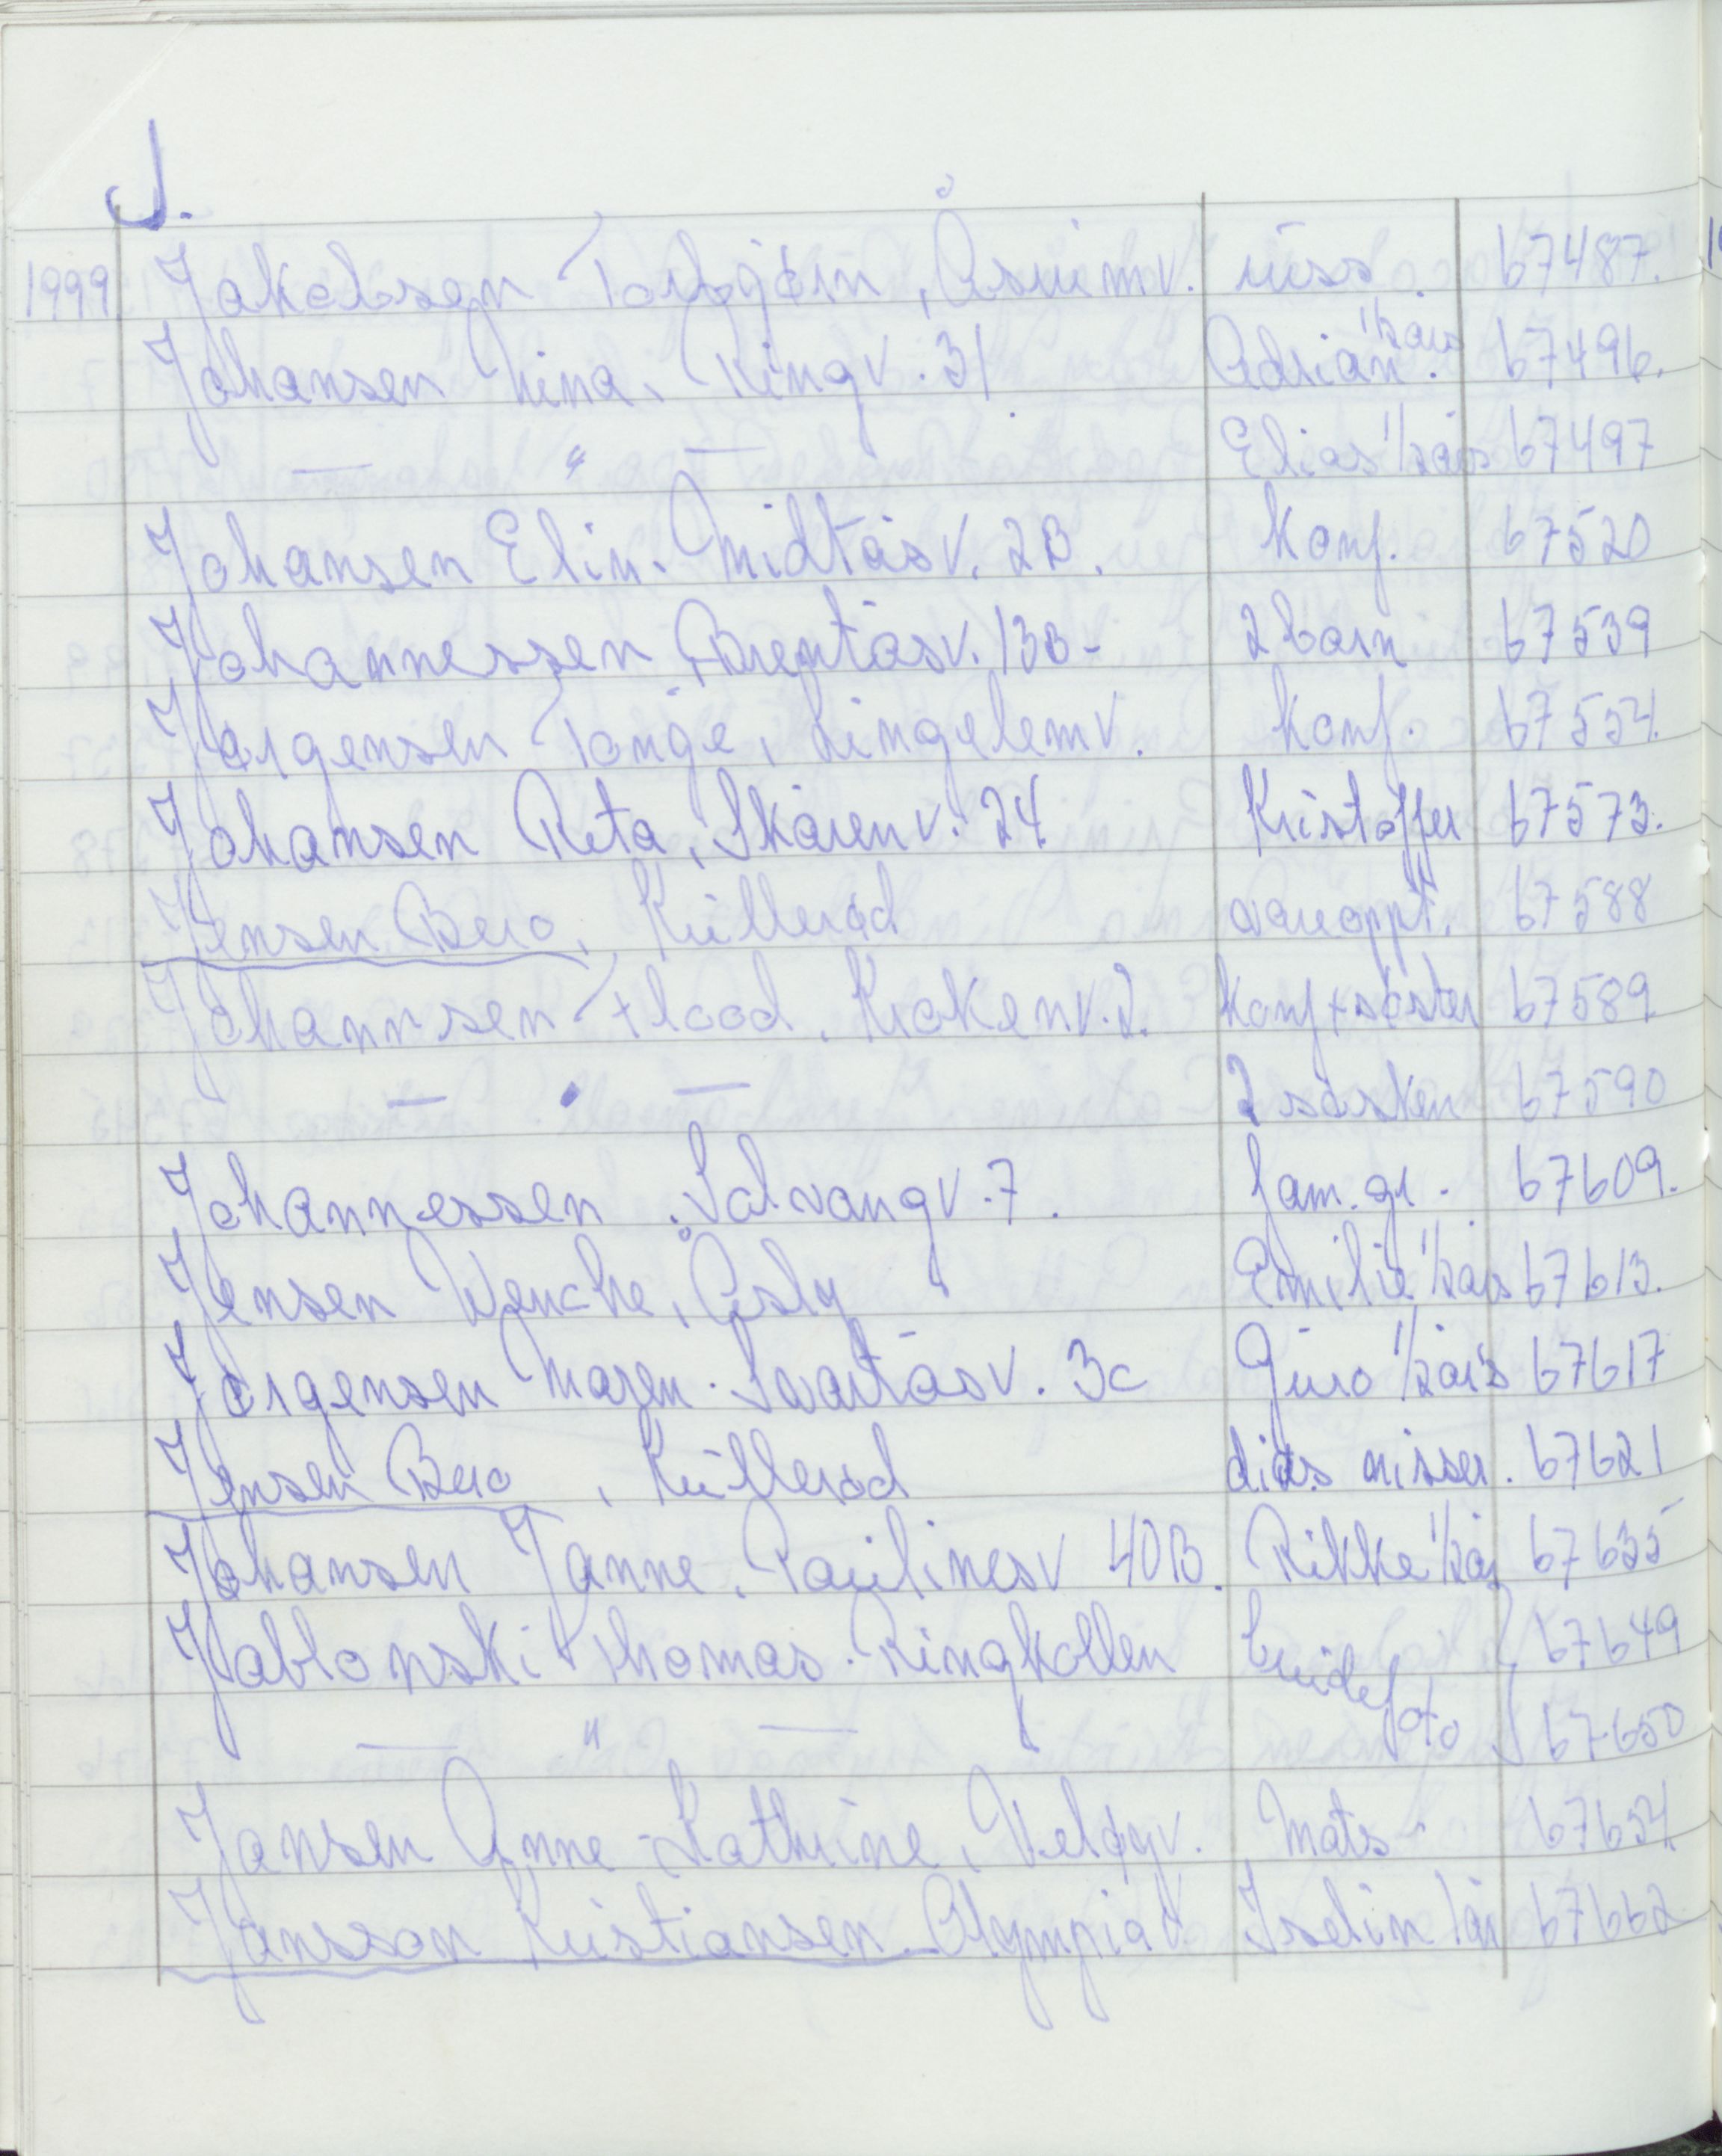 J.
1999. Jakobsen Torbjørn, Åsrumv. russ. 67487.
Johansen Nina, Ringv. 31 Adrian 1/2 års. 67496.
— " — Elias 1/2 års 67497
Johansen Elin. Midtåsv. 2B. Konf. 67520
Johannessen, Brentåsv. 13B - 2 barn 67539
Jørgensen Tonje, Lingelemv. Konf. 67554.
Johansen Reta, Skårenv. 24 Kristoffer 67573.
Jensen Bero, Kullerød vareoppt. 67588
Johannsen Flood. Krokenv. 2. Konf + søster 67589
— " — 2 søsken 67590
Johannessen. Solvangv. 7. fam. gr. 67609.
Jensen Wenche, Åsly Emilie 1/2 års 67613.
Jørgensen Maren. Svartåsv. 3c Guro 1/2 års 67617
Jensen Bero, Kullerød dias nisser. 67621
Johansen Janne. Paulinesv 40B. Rikke 1/2 år 67635
Jablonski Thomas. Ringkollen brudefoto 67649
— " — 67650
Jansen Anne-Kathrine, Meløyv. Mats. 67654
Jansson Kristiansen. Olympiav. Iselin 1 år 67662